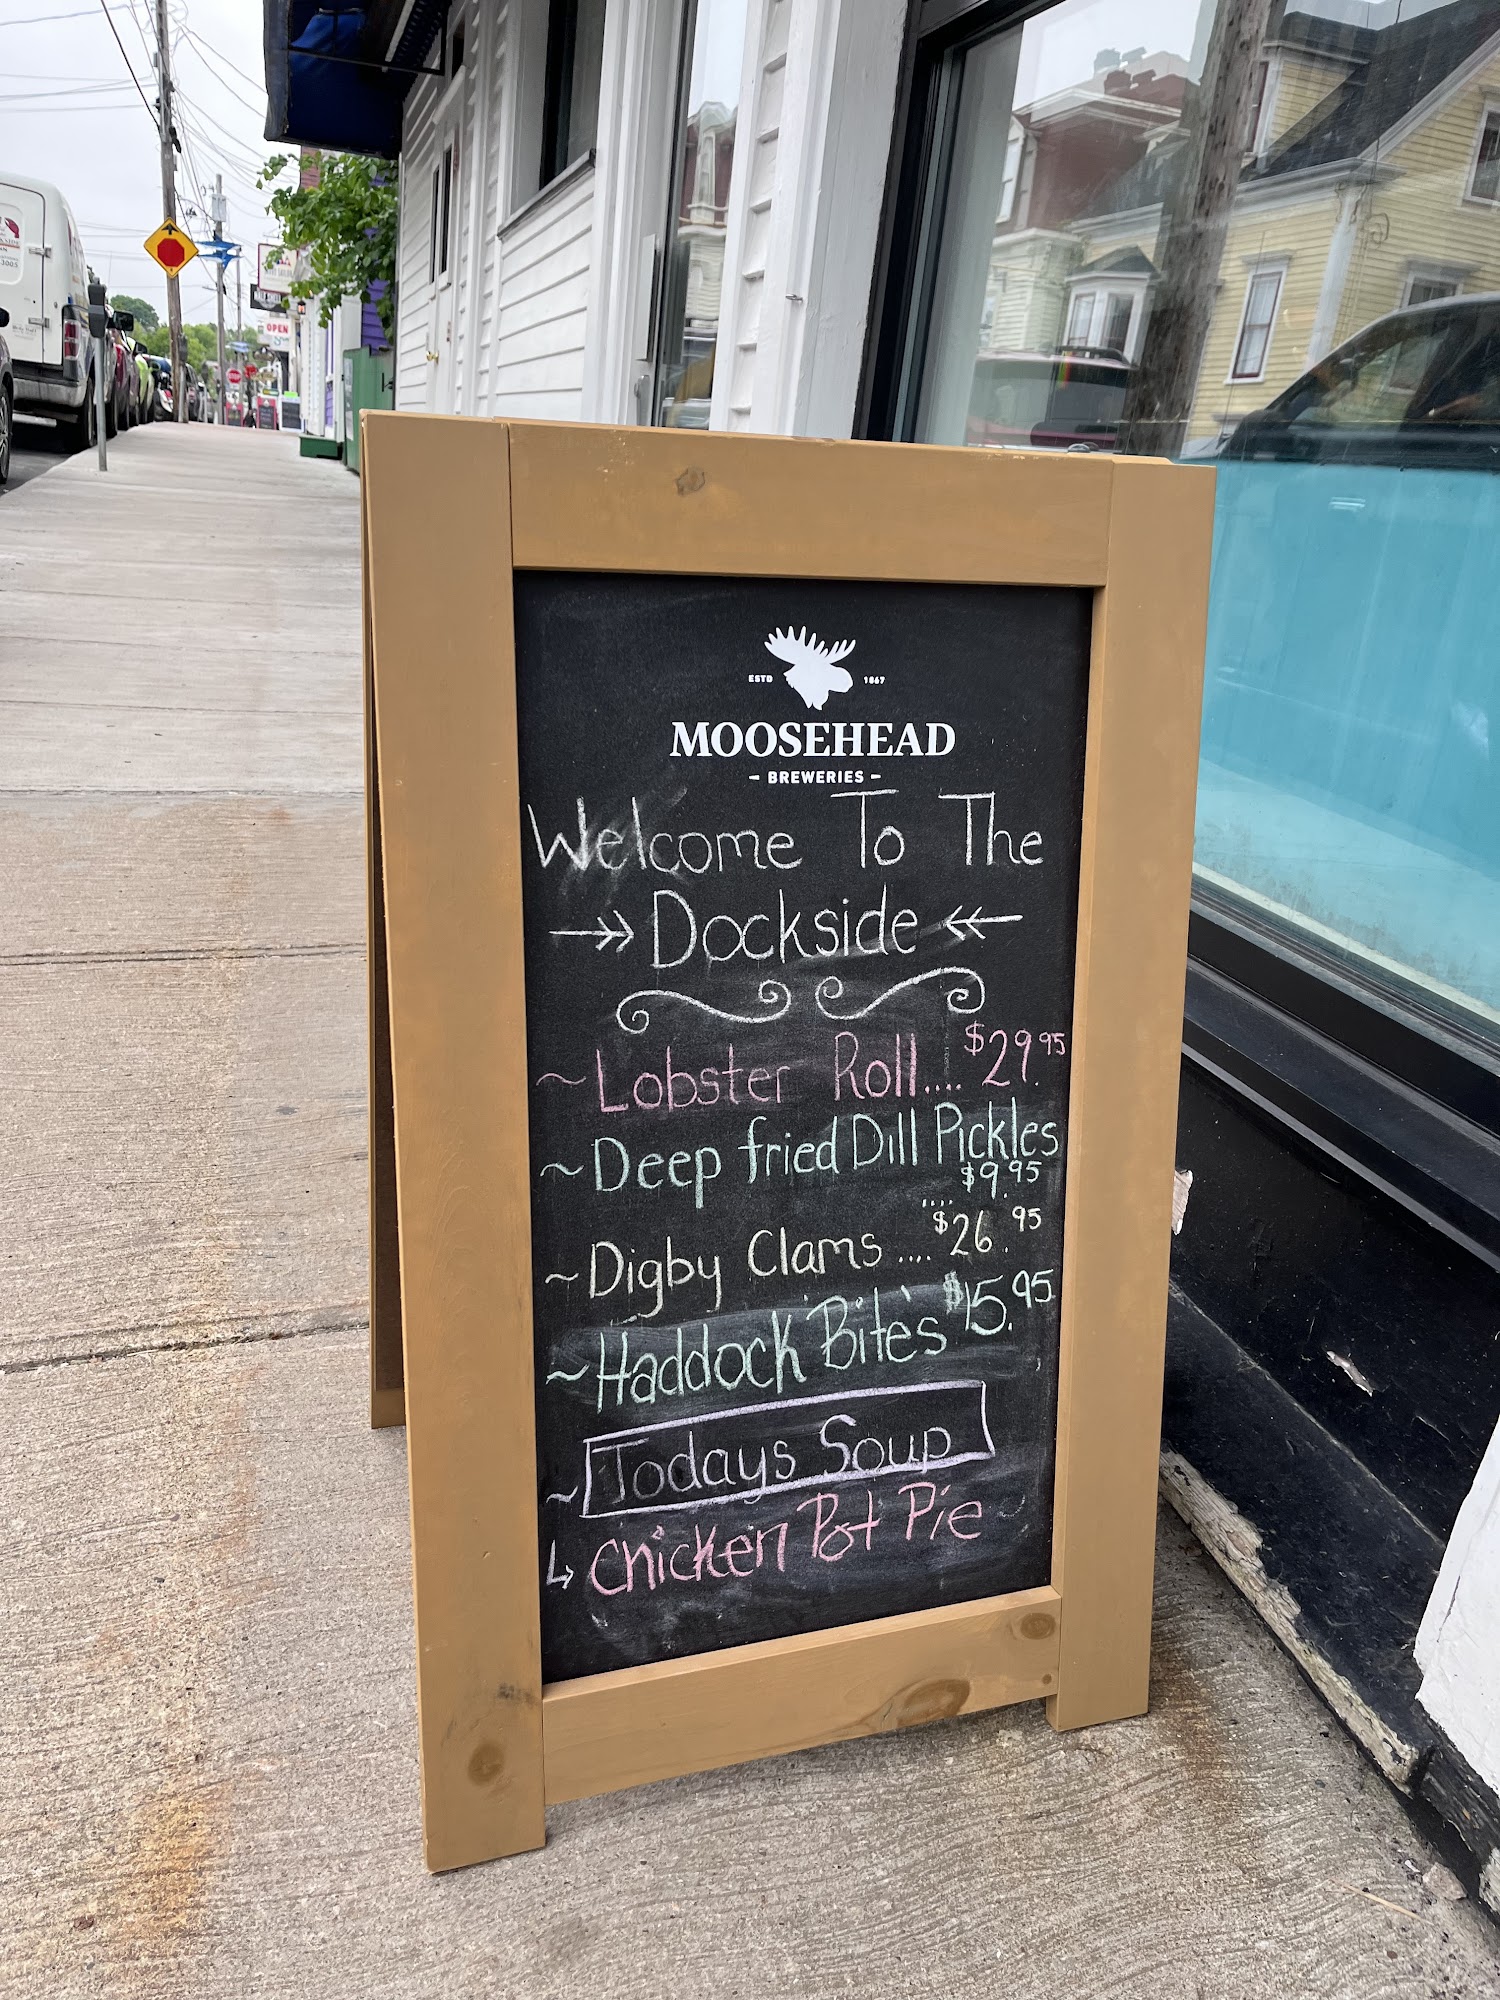 OPEN
ESTD 1867
MOOSEHEAD
- BREWERIES -
Welcome To The
Dockside
~ Lobster Roll.... $29.95
~ Deep fried Dill Pickles
.... $9.95
~ Digby Clams .... $26.95
~ Haddock Bites $15.95
~ Todays Soup
↳ Chicken Pot Pie